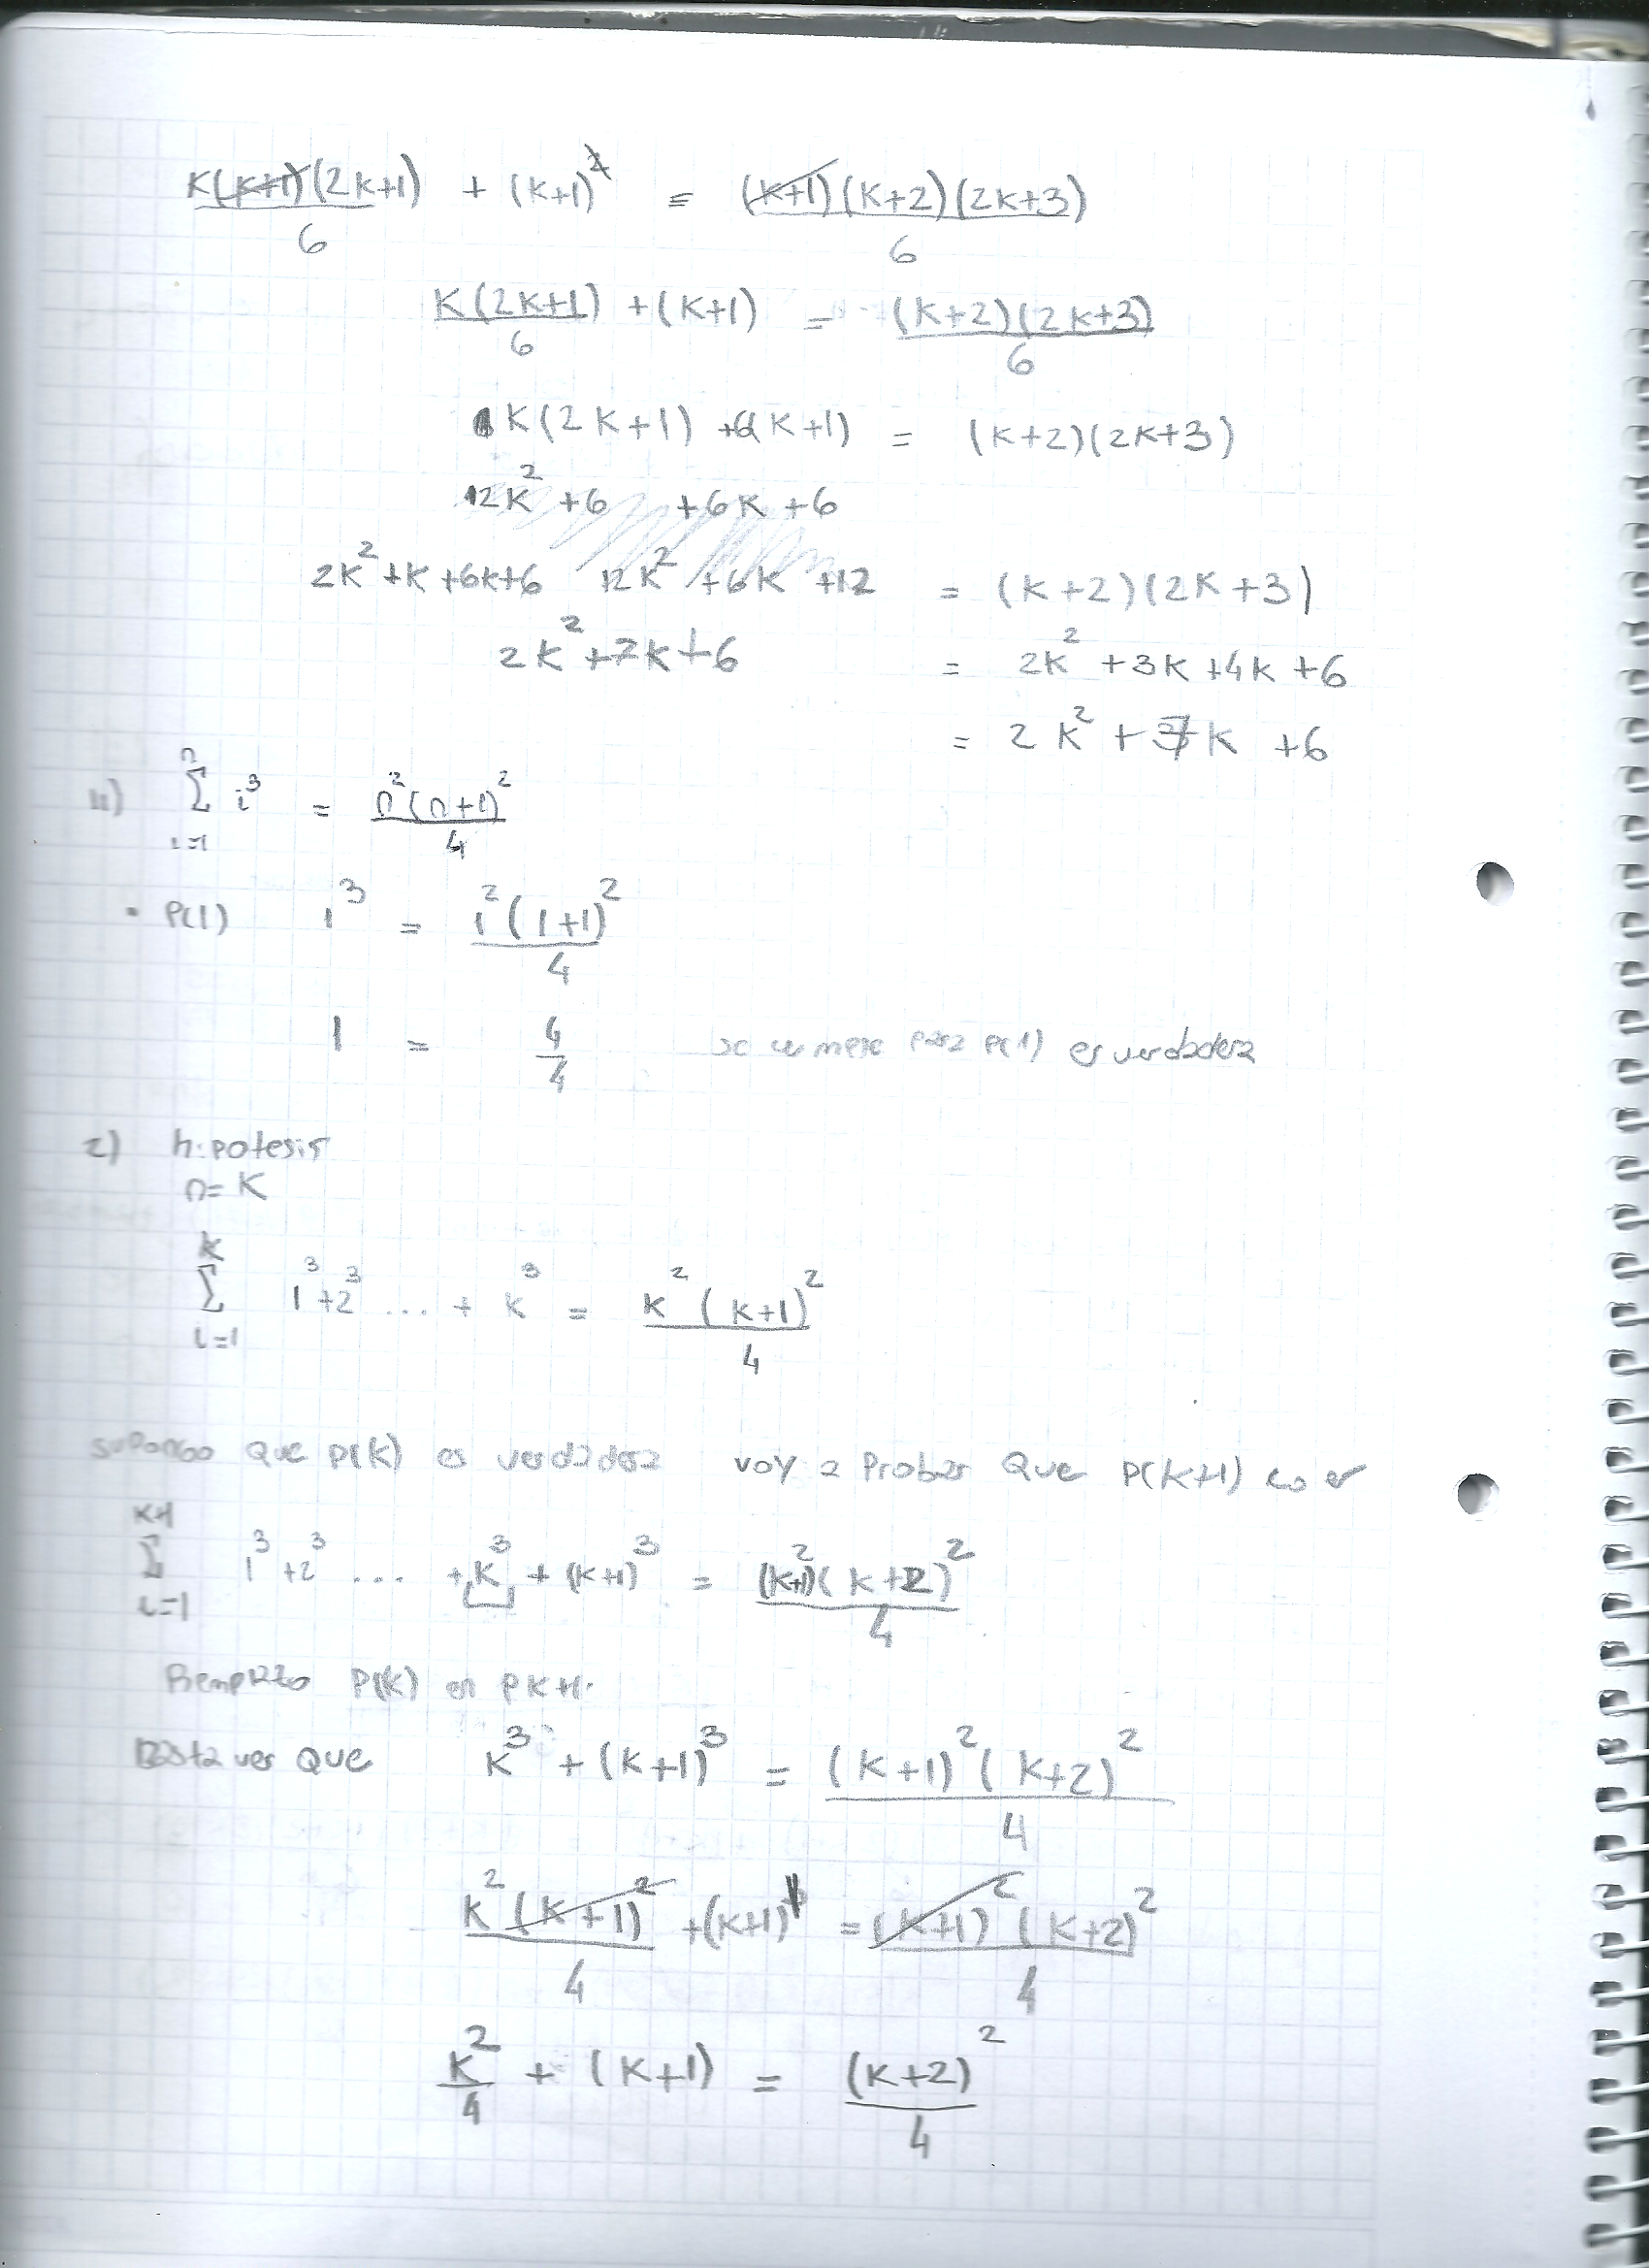 K(k+1)(2k+1)/6 + (k+1)² = (k+1)(k+2)(2k+3)/6
K(2k+1)/6 + (k+1) = (k+2)(2k+3)/6
K(2k+1) + 6(k+1) = (k+2)(2k+3)
12k² + 6 + 6k + 6
2k² + k + 6k + 6 12k² + 6k + 12 = (k+2)(2k+3)
2k² + 7k + 6 = 2k² + 3k + 4k + 6
= 2k² + 7k + 6
11) n Σ i=1 i³ = n²(n+1)²/4
• P(1) 1³ = 1²(1+1)²/4
1 = 4/4 se cumple para P(1) es verdadera
2) hipotesis
n = K
k Σ i=1 1³ + 2³ ... + k³ = k²(k+1)²/4
supongo que P(k) es verdadera voy a probar que P(k+1)
k+1 Σ i=1 1³ + 2³ ... + k³ + (k+1)³ = (k+1)²(k+2)²/4
Remplazo P(k) en PK+1.
Basta ver que k³ + (k+1)³ = (k+1)²(k+2)²/4
k²(k+1)²/4 + (k+1) = (k+1)²(k+2)²/4
k²/4 + (k+1) = (k+2)²/4